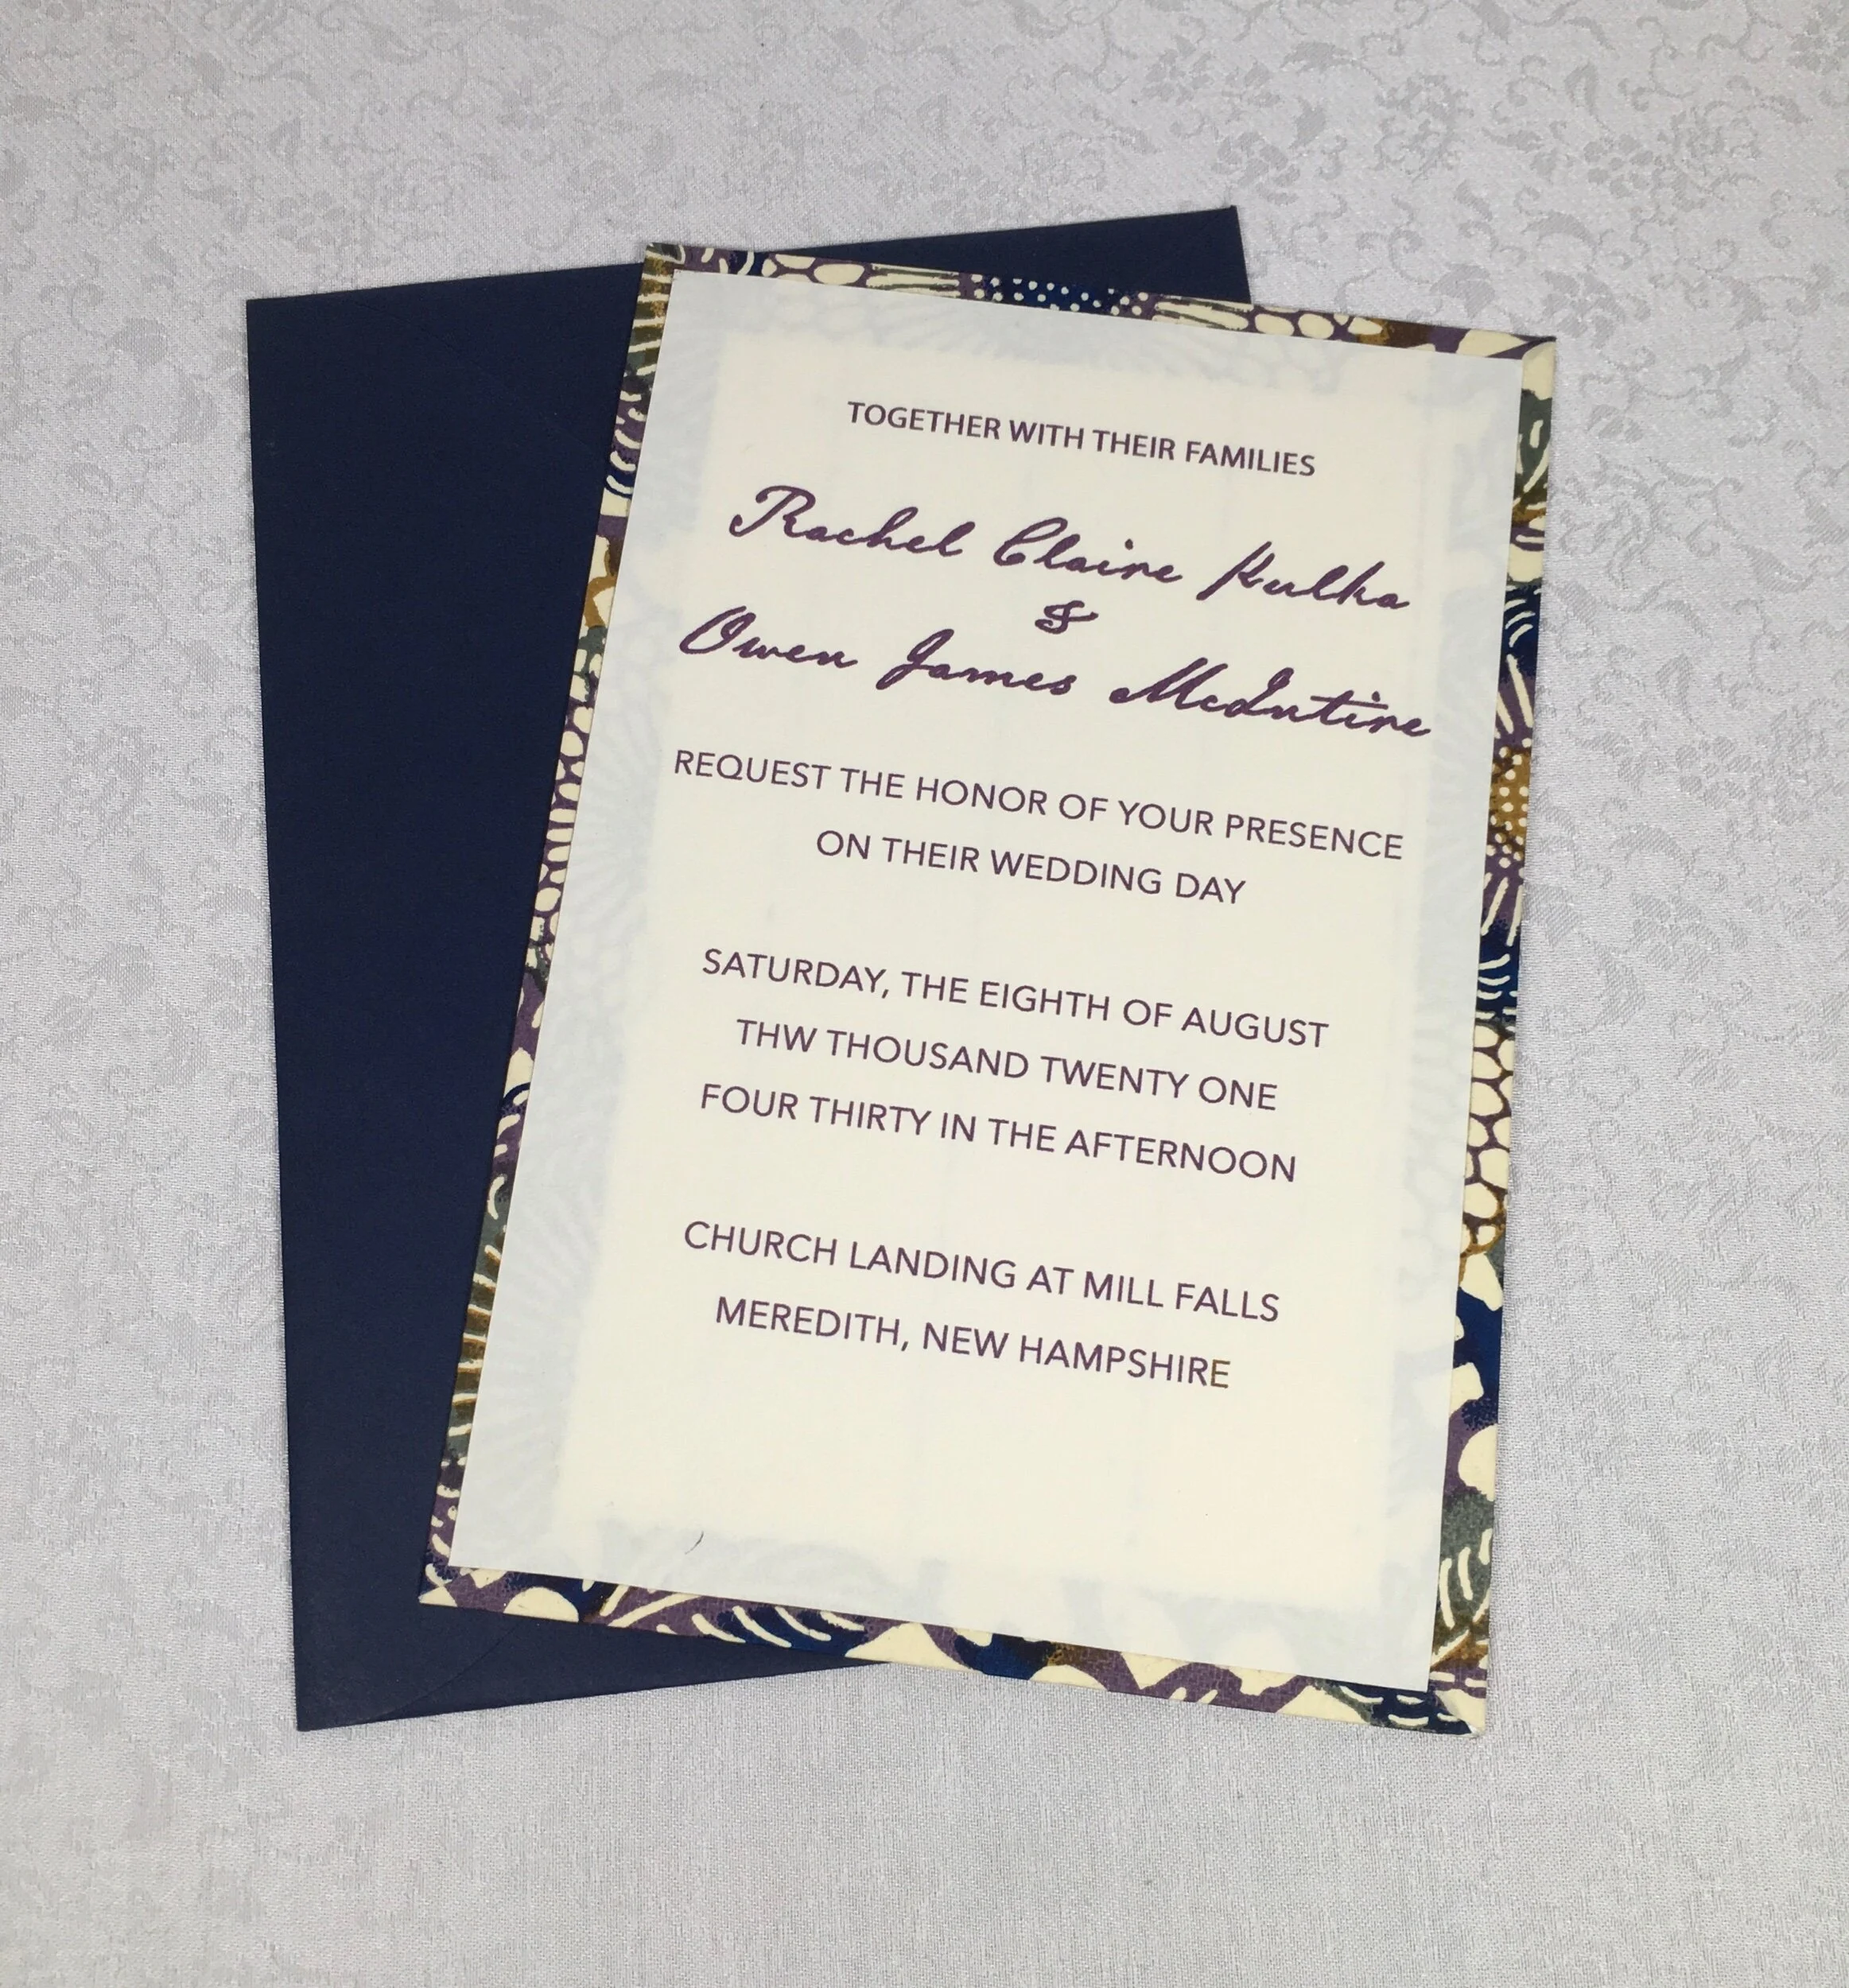 TOGETHER WITH THEIR FAMILIES
Rachel Claire Kulka
&
Owen James McIntire
REQUEST THE HONOR OF YOUR PRESENCE
ON THEIR WEDDING DAY
SATURDAY, THE EIGHTH OF AUGUST
THW THOUSAND TWENTY ONE
FOUR THIRTY IN THE AFTERNOON
CHURCH LANDING AT MILL FALLS
MEREDITH, NEW HAMPSHIRE